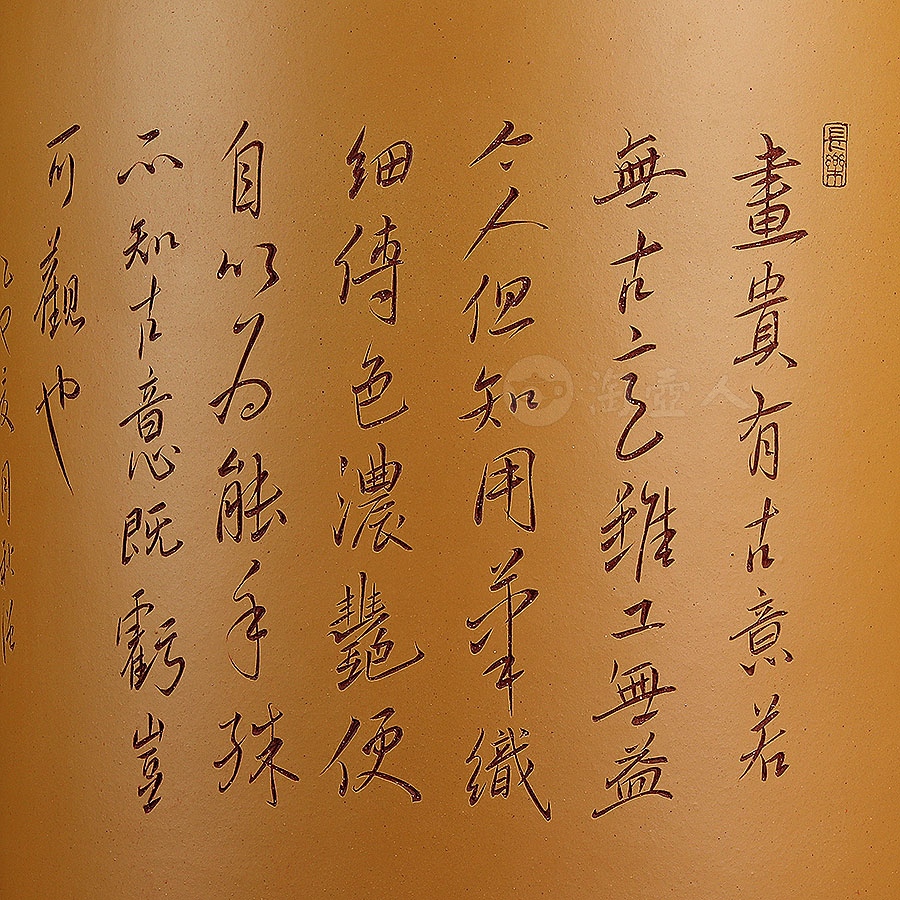 長樂
畫貴有古意若
無古意雖工無益
今人但知用筆纖
細傅色濃艷便
自以為能手殊
不知古意既虧豈
可觀也
淘壺人